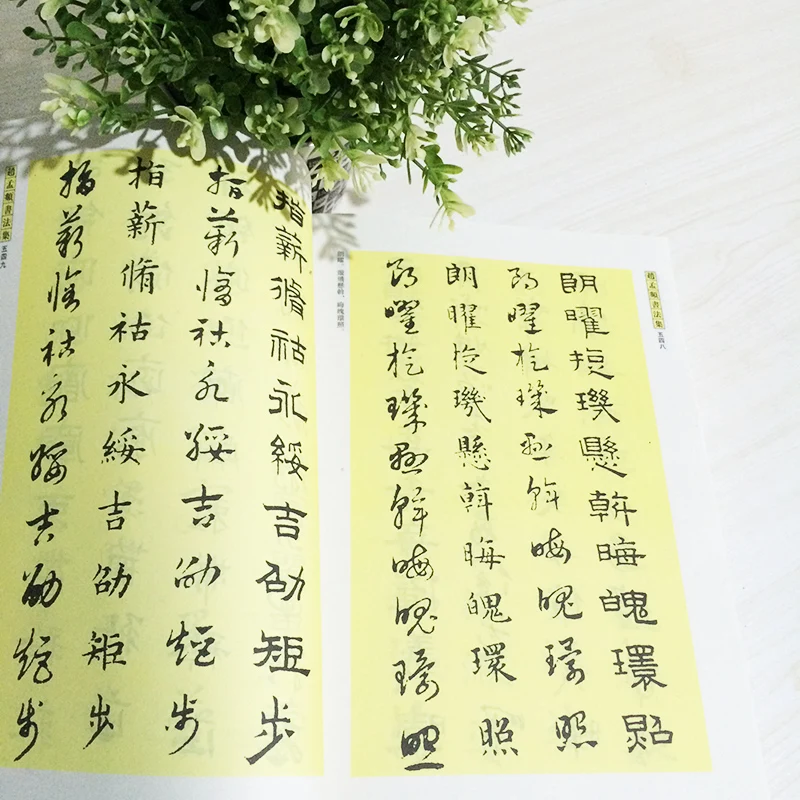 趙孟頫書法集 五四八
朗曜旋璣懸斡晦魄環照
朗曜旋璣懸斡晦魄環照
朗曜旋璣懸斡晦魄環照
朗曜旋璣懸斡晦魄環照
朗曜、旋璣懸斡、晦魄環照。
指薪脩祜永綏吉劭矩步
指薪脩祜永綏吉劭矩步
指薪脩祜永綏吉劭矩步
指薪脩祜永綏吉劭矩步
趙孟頫書法集 五四九